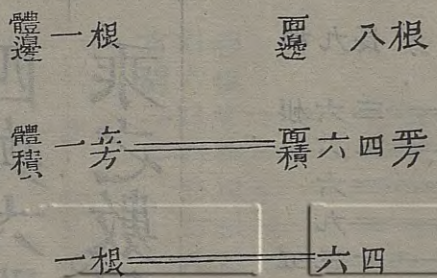 體邊一根 面邊八根
體積一立方══面積六四平方
一根══六四